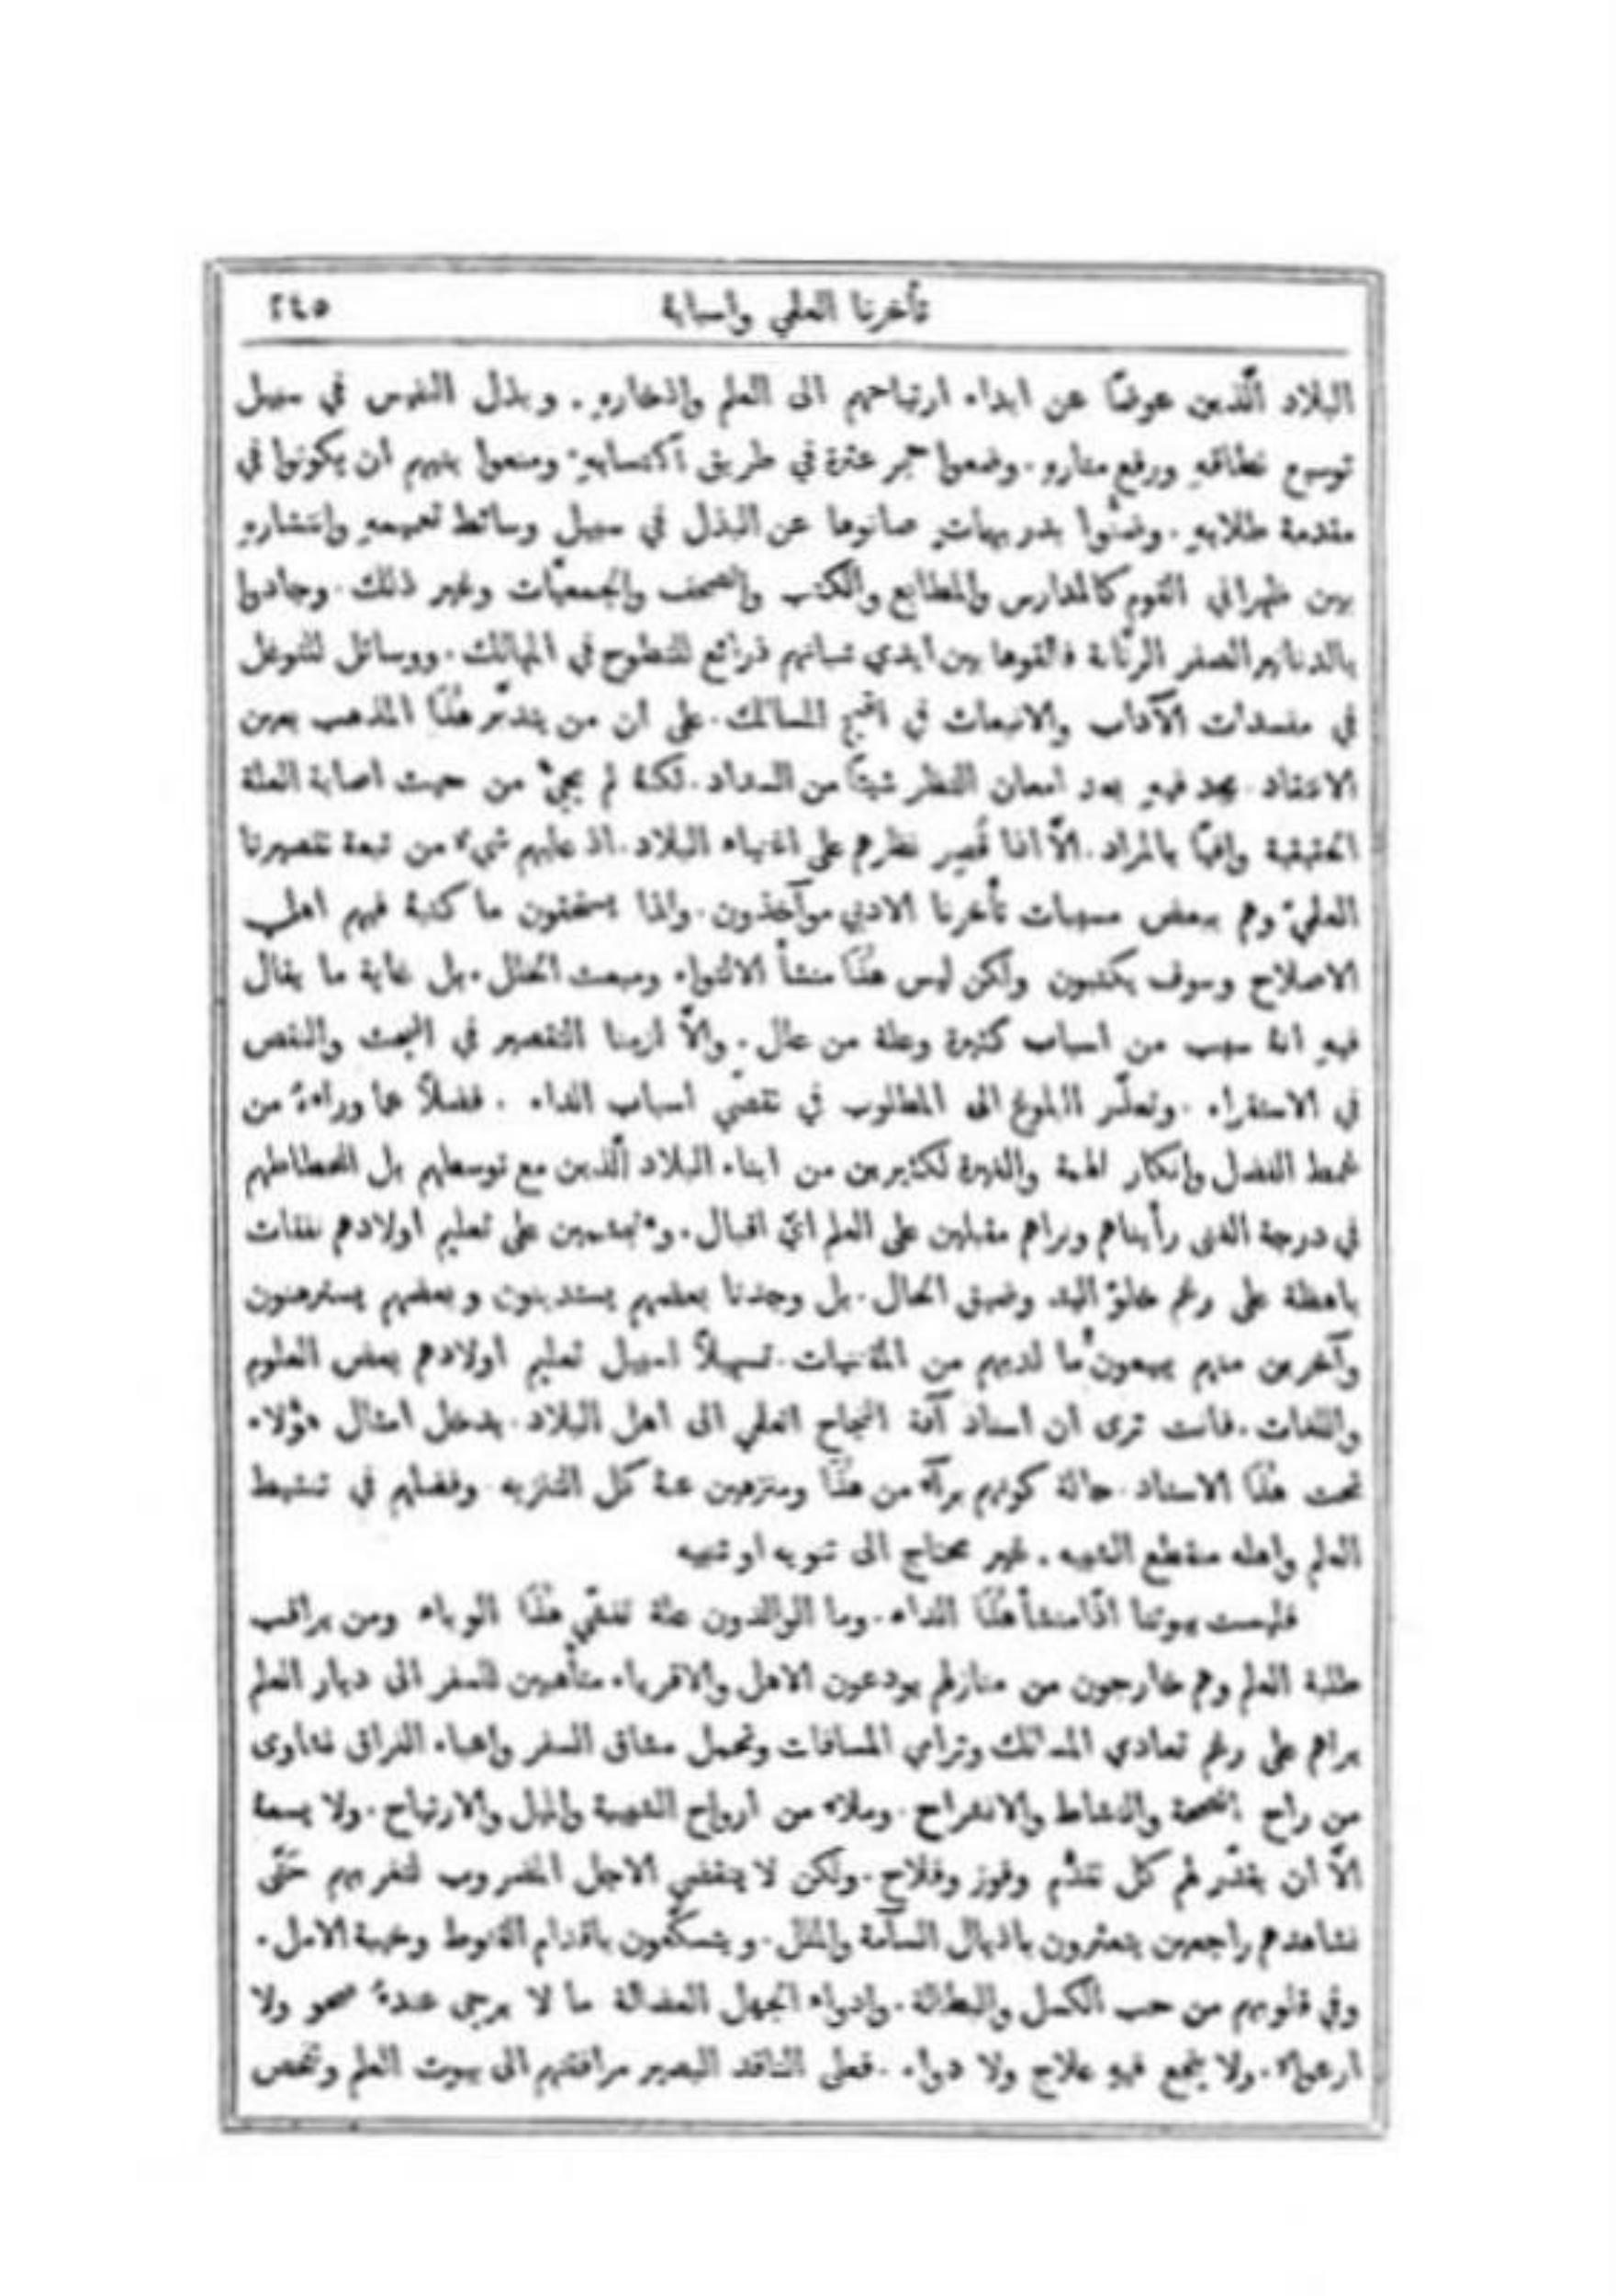 تأخرنا العلمي واسبابهُ ٢٤٥
البلاد الَّذين عوضًا عن ابداء ارتياحهم الى العلم وادخارهِ. وبذل النفيس في سبيل
توسيع نطاقهِ ورفع منارهِ. وضعوا حجر عثرة في طريق اكتسابهِ. ومنعوا بنيهم أن يكونوا في
مقدمة طلابهِ. وضنُّوا بدريهمات صانوها عن البذل في سبيل وسائط تعميمهِ وانتشارهِ
بين ظهراني القوم كالمدارس والمطابع والكتب والصحف والجمعيَّات وغير ذلك. وجادوا
بالدنانير الصفر الرنَّانة فالقوها بين ايدي شبانهم ذرائع للتطوح في المهالك. ووسائل للتوغل
في مفسدات الآداب والانبعاث في اقبح المسالك. على ان من يتدبَّر هٰذَا المذهب بعين
الانتقاد. يجد فيهِ بعد امعان النظر شيئًا من السداد. لكنهُ لم يجئْ من حيث اصابة العلة
الحقيقية وافيًا بالمراد. الَّا اذا قُصِر نظرهم على اغنياء البلاد. اذ عليهم شيءٌ من تبعة تقصيرنا
العلميّ وهم ببعض مسببات تأخرنا الادبي موآخذون. ولذا يستحقون ما كتبهُ فيهم اهل
الاصلاح وسوف يكتبون ولكن ليس هٰذَا منشأ الالتواء ومبعث الخلل. بل غاية ما يقال
فيهِ انهُ سبب من اسباب كثيرة وعلة من علل. والَّا لزمنا التقصير في البحث والنقص
في الاستقراء. وتعذَّر البلوغ الى المطلوب في تقصّي اسباب الداء. فضلًا عما وراءهُ من
غمط الفضل وانكار الهمة والغيرة لكثيرين من ابناء البلاد الَّذين مع توسطهم بل انحطاطهم
في درجة الغنى رأيناهم ونراهم مقبلين على العلم ايَّ اقبال. ومتجشمين على تعليم اولادهم نفقات
باهظة على رغم خلوّ اليد وضيق الحال. بل وجدنا بعضهم يستدينون وبعضهم يسترهنون
وآخرين منهم يبيعون ما لديهم من المقتنيات. تسهيلًا لسبيل تعليم اولادهم بعض العلوم
واللغات. فانت ترى ان اسناد آفة النجاح العلمي الى اهل البلاد. يدخل امثال هؤلاء
تحت هٰذَا الاسناد. حالة كونهم برآء من هٰذَا ومنزهين عنهُ كل التنزيه. وفضلهم في تنشيط
العلم واهله منقطع الشبيه. غير محتاج الى تنويه او تنبيه
فليست بيوتنا اذًا منشأ هٰذَا الداء. وما الوالدون علة تفشّي هٰذَا الوباء ومن يراقب
طلبة العلم وهم خارجون من منازلهم يودعون الاهل والاقرباء متأهبين للسفر الى ديار العلم
يراهم على رغم تعادي المسالك وترامي المسافات وتحمل مشاق السفر واعباء الفراق نشاوى
من راح الصحة والنشاط والانشراح. وملاء من ارواح الشبيبة والميل والارتياح. ولا يسعهُ
الَّا ان يقدّر لهم كل تقدُّم وفوز وفلاح. ولكن لا ينقضي الاجل المضروب لتغربهم حَتَّى
نشاهدهم راجعين يتعثرون باذيال السآمة والملل. ويتسكَّعون باقدام القنوط وخيبة الامل.
وفي قلوبهم من حب الكسل والبطالة. وادواء الجهل العضالة ما لا يرجى عندهُ صحو ولا
ارعواء. ولا ينجع فيهِ علاج ولا دواء. فعلى الناقد البصير مرافقتهم الى بيوت العلم وتفحص